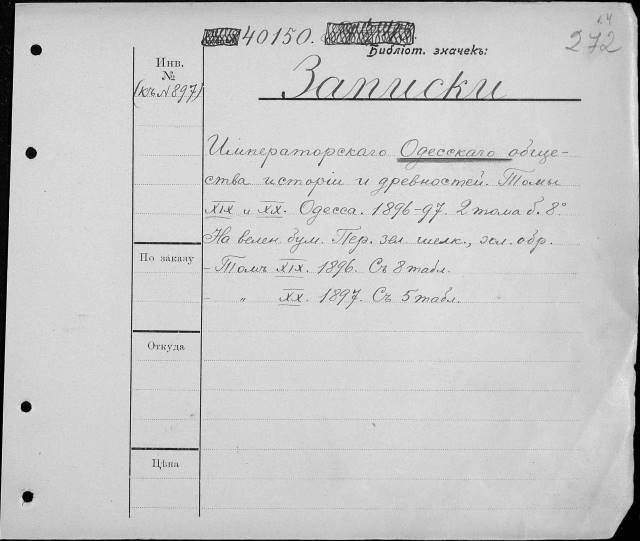 40150.
л.4
272
Библіот. значекъ:
Инв.
№
(къ № 897)
Записки
Императорскаго Одесскаго обще-
ства исторіи и древностей. Томы
XIX и XX. Одесса. 1896-97. 2 тома б. 8°
На велен. бум. Пер. зел. шелк., зол. обр.
- Томъ XIX. 1896. Съ 8 табл.
- „ XX. 1897. Съ 5 табл.
По заказу
Откуда
Цѣна